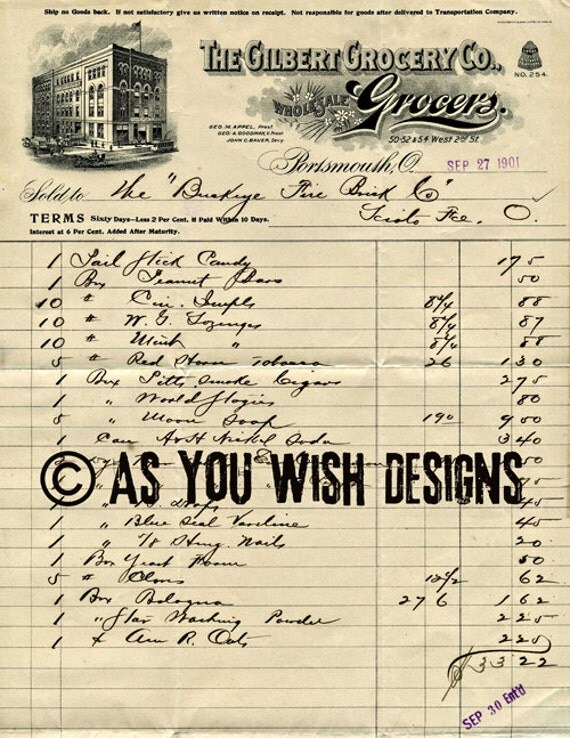 Ship no Goods back. If not satisfactory give us written notice on receipt. Not responsible for goods after delivered to Transportation Company.
THE GILBERT GROCERY CO.,
WHOLESALE Grocers.
NO. 254.
GEO. M. APPEL, Prest.
GEO. A. GOODMAN, V. Prest
JOHN C. BAUER, Secy.
50-52 & 54 West 2nd St.
Portsmouth, O. SEP 27 1901
Sold to The "Buckeye Fire Brick Co"
Scioto Fce. O.
TERMS Sixty Days—Less 2 Per Cent. if Paid Within 10 Days.
Interest at 6 Per Cent. Added After Maturity.
1 Pail Stick Candy 1 75
1 Box Peanut Bars 50
10 # Cin. 8 3/4 88
10 # W. G. Lozenges 8 3/4 87
10 # Mint " 8 3/4 88
5 # Red Horse Tobacco 26 1 30
1 Box Pitts. Smoke Cigars 2 75
1 " World Stogies 80
5 " Moon Soap 1 90 9 50
1 Case A & H Nickel Soda 3 40
© AS YOU WISH DESIGNS
Drops 45
1 " Blue Seal Vaseline 45
1 " Nails 20
1 Box Yeast Foam 50
5 # 12 1/2 62
1 Box Bologna 27 6 1 62
1 " Star Washing Powder 2 25
1 " Am R. Oats 2 25
$33 22
SEP 30 Ent'd